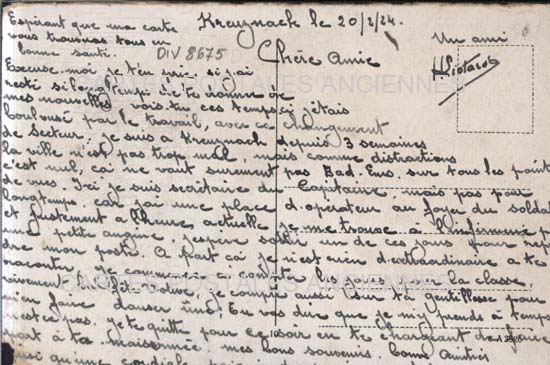 Kreuznach le 20/2/24.
Espérant que ma carte
vous trouvera tous en
bonne santé.
DIV 8675
Un ami
Chère Amie
Excuse moi, je t'en prie, si j'ai
resté si longtemps à te donner de
mes nouvelles, vois-tu ces temps ci j'étais
boulousé par le travail, avec ce changement
de secteur, je suis à Kreuznach depuis 3 semaines
la ville n'est pas trop mal, mais comme distractions
c'est nul, ça ne vaut surement pas Bad. Ems. sur tous les points
de vues. Ici je suis secrétaire du Capitaine, mais pas pour
longtemps, car j'ai une place d'opérateur au foyer du soldat
et justement à l'heure actuelle je me trouve à l'infirmerie
une petite angine, j'espère sortir un de ces jours pour
dre mon poste. A part ça je n'est rien d'extraordinaire a te
raconter, je commence a compter les la classe,
vivement je compte aussi sur ta gentillesse pour
faire danser Eu vas dire que je m'y prends à temps
n'est ce pas. je te quitte pour ce soir en te chargeant de faire
part à ta maisonnée, mes bons souvenirs. amitiés
ainsi qu'une cordiale
CARTES POSTALES ANCIENNES
CARTES POSTALES ANCIENNES